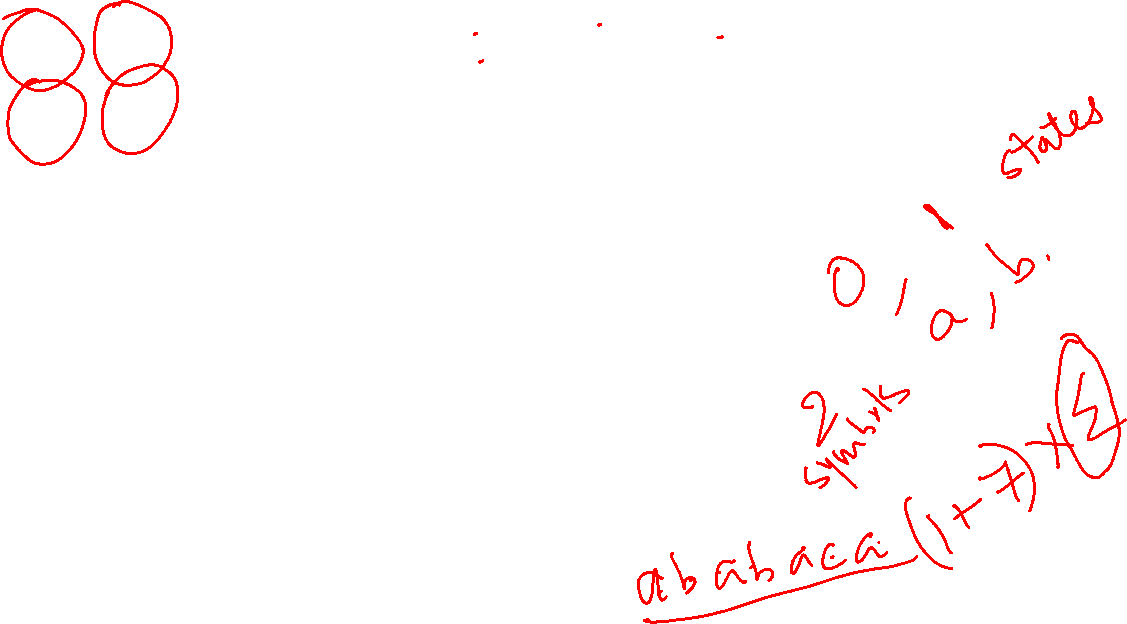 states
0, 1
a, b.
2
symbols
ababaca (1+7) × Σ